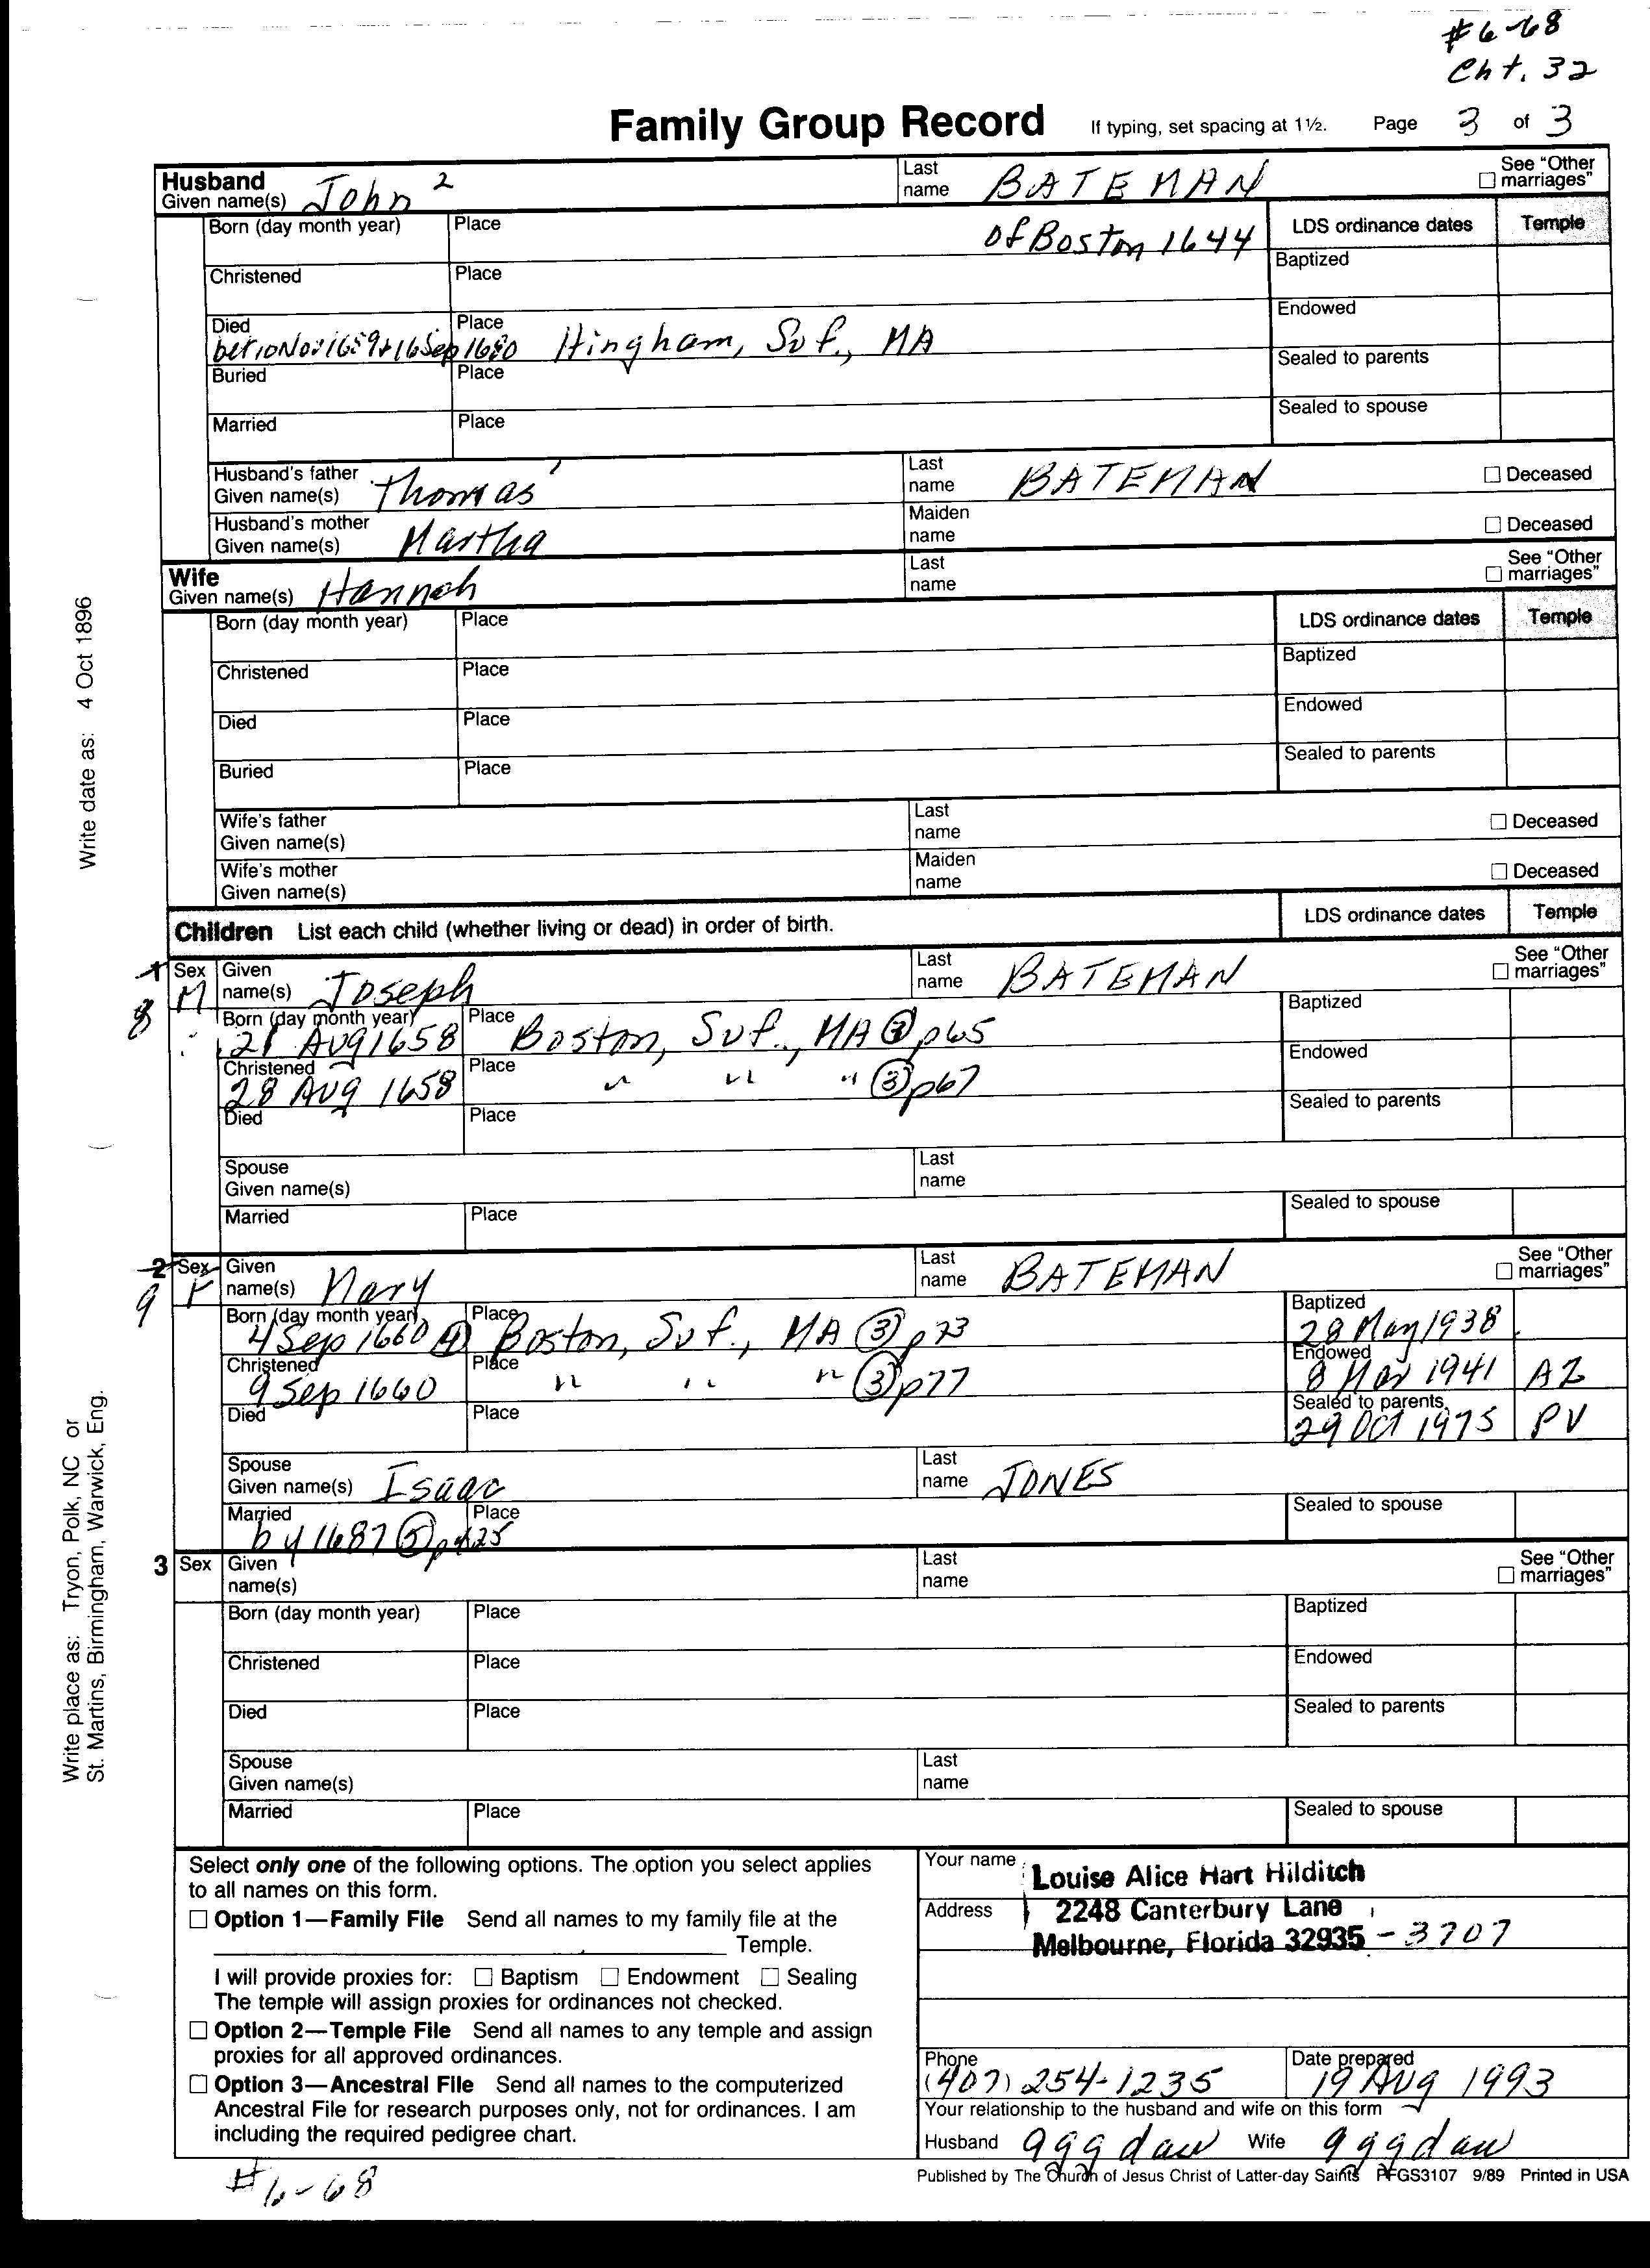 #6-68
Cht. 32
Family Group Record If typing, set spacing at 1½. Page 3 of 3
Husband
Given name(s) John 2 Last name BATEMAN See "Other marriages"
Born (day month year) Place of Boston 1644 LDS ordinance dates Temple
Christened Place Baptized
Endowed
Died bet 10 Nov 1659 & 16 Sep 1680 Place Hingham, Suf., MA
Sealed to parents
Buried Place
Sealed to spouse
Married Place
Husband's father Given name(s) Thomas 1 Last name BATEMAN Deceased
Husband's mother Given name(s) Martha Maiden name Deceased
Wife
Given name(s) Hannah Last name See "Other marriages"
Born (day month year) Place LDS ordinance dates Temple
Christened Place Baptized
Died Place Endowed
Buried Place Sealed to parents
Wife's father Given name(s) Last name Deceased
Wife's mother Given name(s) Maiden name Deceased
Children List each child (whether living or dead) in order of birth. LDS ordinance dates Temple
1 8 Sex M Given name(s) Joseph Last name BATEMAN See "Other marriages"
Born (day month year) 21 Aug 1658 Place Boston, Suf., MA (3) p65 Baptized
Christened 28 Aug 1658 Place " " " (3) p67 Endowed
Died Place Sealed to parents
Spouse Given name(s) Last name
Married Place Sealed to spouse
2 9 Sex F Given name(s) Mary Last name BATEMAN See "Other marriages"
Born (day month year) 4 Sep 1660 (4) Place Boston, Suf., MA (3) p73 Baptized 28 May 1938
Christened 9 Sep 1660 Place " " " (3) p77 Endowed 8 Mar 1941 AZ
Died Place Sealed to parents 29 Oct 1975 PV
Spouse Given name(s) Isaac Last name JONES
Married by 1687 (5) p425 Place Sealed to spouse
3 Sex Given name(s) Last name See "Other marriages"
Born (day month year) Place Baptized
Christened Place Endowed
Died Place Sealed to parents
Spouse Given name(s) Last name
Married Place Sealed to spouse
Select only one of the following options. The option you select applies
to all names on this form.
Option 1—Family File Send all names to my family file at the
Temple.
I will provide proxies for: Baptism Endowment Sealing
The temple will assign proxies for ordinances not checked.
Option 2—Temple File Send all names to any temple and assign
proxies for all approved ordinances.
Option 3—Ancestral File Send all names to the computerized
Ancestral File for research purposes only, not for ordinances. I am
including the required pedigree chart.
Your name Louise Alice Hart Hilditch
Address 2248 Canterbury Lane
Melbourne, Florida 32935 - 3707
Phone (407) 254-1235 Date prepared 19 Aug 1993
Your relationship to the husband and wife on this form
Husband 9gg dau Wife 9ggdau
Published by The Church of Jesus Christ of Latter-day Saints PFGS3107 9/89 Printed in USA
#6-68
Write date as: 4 Oct 1896
Write place as: Tryon, Polk, NC or
St. Martins, Birmingham, Warwick, Eng.